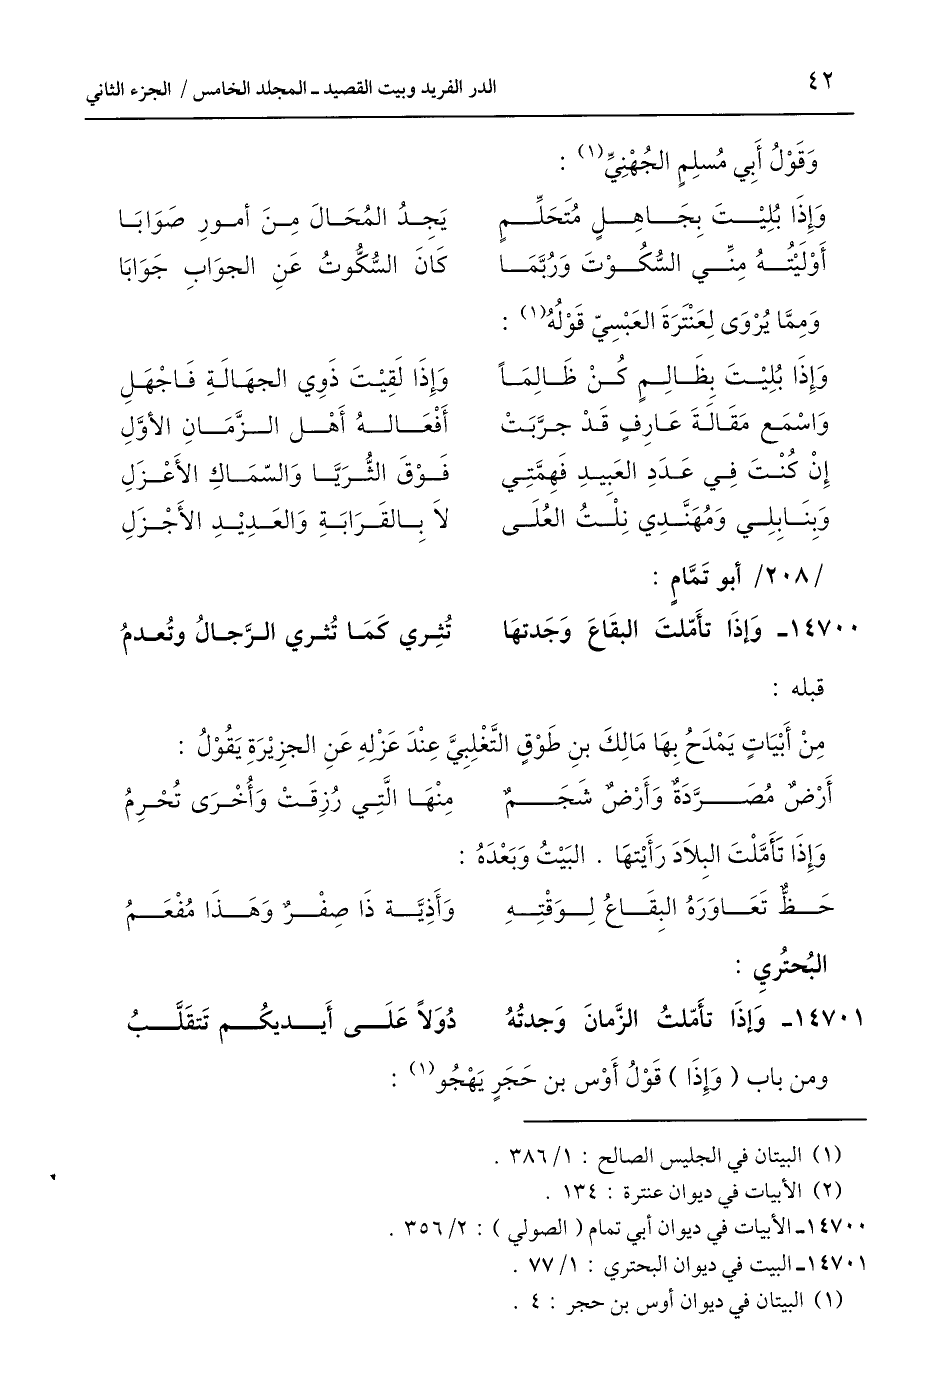 ٤٢ الدر الفريد وبيت القصيد ـ المجلد الخامس / الجزء الثاني
وَقَوْلُ أَبي مُسلِمٍ الجُهْنِيِّ(١) :
وَإِذَا بُلِيْتَ بِجَاهِلٍ مُتَحَلِّمٍ يَجِدُ المُحَالَ مِنَ أمورِ صَوَابَا
أَوْلَيْتُهُ مِنِّي السُّكُوْتَ وَرُبَّمَا كَانَ السُّكُوتُ عَنِ الجوَابِ جَوَابَا
وَمِمَّا يُرْوَى لِعَنْتَرَةَ العَبْسِيّ قَوْلُهُ(١) :
وَإِذَا بُلِيْتَ بِظَالِمٍ كُنْ ظَالِمَاً وَإِذَا لَقِيْتَ ذَوِي الجهَالَةِ فَاجْهَلِ
وَاسْمَع مَقَالَةَ عَارِفٍ قَدْ جرَّبَتْ أفْعَالهُ أَهْلِ الزَّمَانِ الأوَّلِ
إِنْ كُنْتَ فِي عَدَدِ العَبِيدِ فَهِمَّتِي فَوْقَ الثُّرَيَّا وَالسّمَاكِ الأعْزَلِ
وَبِنَابِلِي وَمُهَنَّدِي نِلْتُ العُلَى لا بِالقَرَابَةِ وَالعَدِيْدِ الأجْزَلِ
/٢٠٨/ أبو تَمَّامٍ :
١٤٧٠٠ـ وَإِذَا تأمّلتَ البقَاعَ وَجَدتهَا تُثِري كَمَا تُثري الرِّجَالُ وتُعدمُ
قبله :
مِنْ أَبْيَاتٍ يَمْدَحُ بِهَا مَالِكَ بن طَوْقٍ التَّغْلِبِيَّ عِنْدَ عَزْلِهِ عَنِ الجزِيْرَةِ يَقُوْلُ :
أَرْضٌ مُصَرَّدَةٌ وَأَرْضٌ شَجَمٌ مِنْهَا الَّتِي رُزِقَتْ وَأُخْرَى تُحْرمُ
وَإِذَا تَأَمَّلْتَ البِلاَدَ رَأَيْتهَا . البَيْتُ وَبَعْدَهُ :
حَظٌّ تَعَاوَرَهُ البِقَاعُ لِوَقْتِهِ وَأَذِيَّة ذَا صِفْرٌ وَهَذَا مُفْعَمُ
البُحتُري :
١٤٧٠١ـ وَإِذَا تأمّلتُ الزّمَانَ وَجدتُهُ دُوَلاً عَلَى أيديكُم تَتقَلَّبُ
ومن باب ( وَإِذَا ) قَوْلُ أَوْس بن حَجَرٍ يَهْجُو(١) :
(١) البيتان في الجليس الصالح : ١/ ٣٨٦ .
(٢) الأبيات في ديوان عنترة : ١٣٤ .
١٤٧٠٠ـ الأبيات في ديوان أبي تمام ( الصولي ) : ٢/ ٣٥٦ .
١٤٧٠١ـ البيت في ديوان البحتري : ١/ ٧٧ .
(١) البيتان في ديوان أوس بن حجر : ٤ .